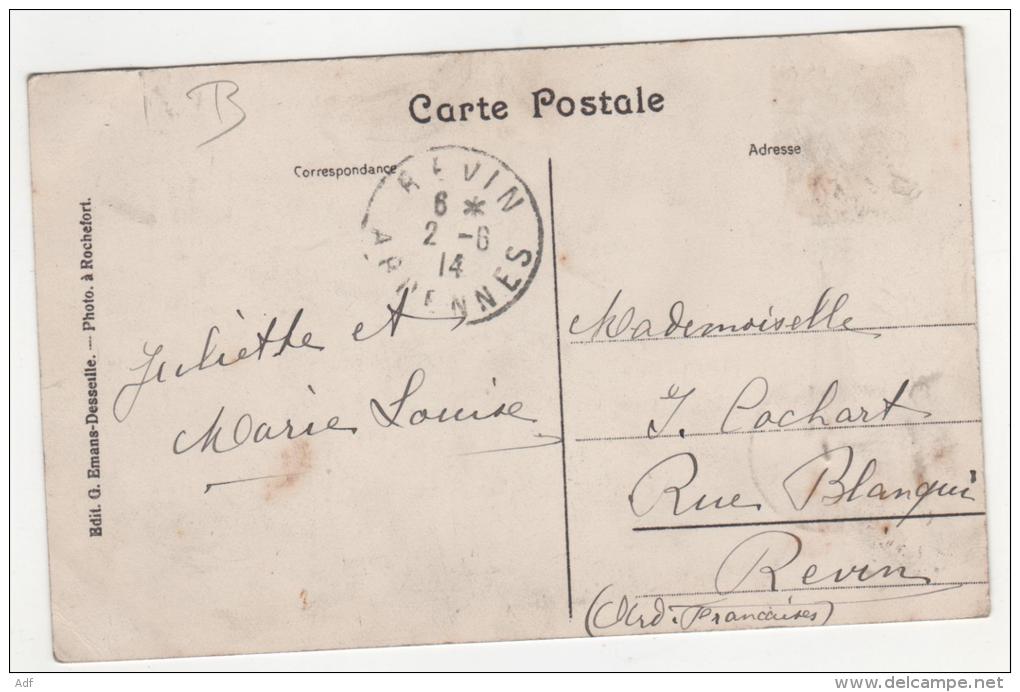 B
Carte Postale
Correspondance
Adresse
REVIN
6 *
2 -6
14
ARDENNES
Edit. G. Emans-Desseille. — Photo. à Rochefort.
Juliette et
Marie Louise
Mademoiselle
J. Cochart
Rue Blanqui
Revin
(Ard. Françaises)
Adf
www.delcampe.net